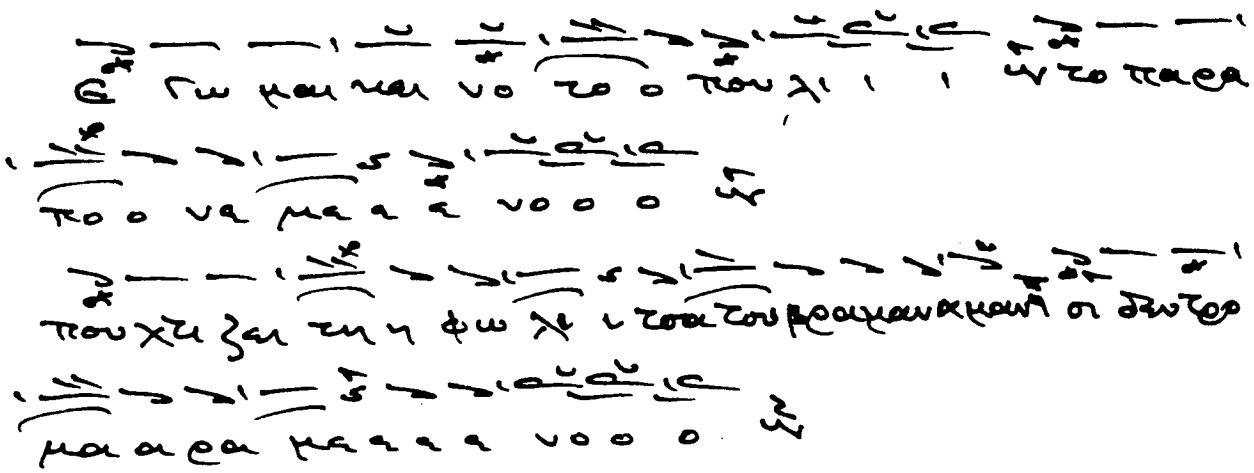 Ε Γω μαι και νο το ο που λι ι ι το παρα
πο ο να μα α α νο ο ο
που χτι ζει τη η φω λι ι τσα του βραμαν αμαν σι δεντρο
μα α ρα μα α α α νο ο ο